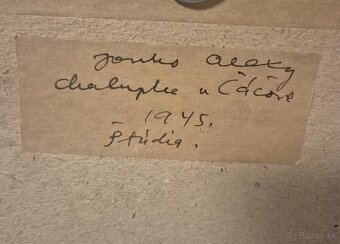 Janko Alexy
chalupke v Čáčove
1945.
Štúdia.
© Bazos.sk